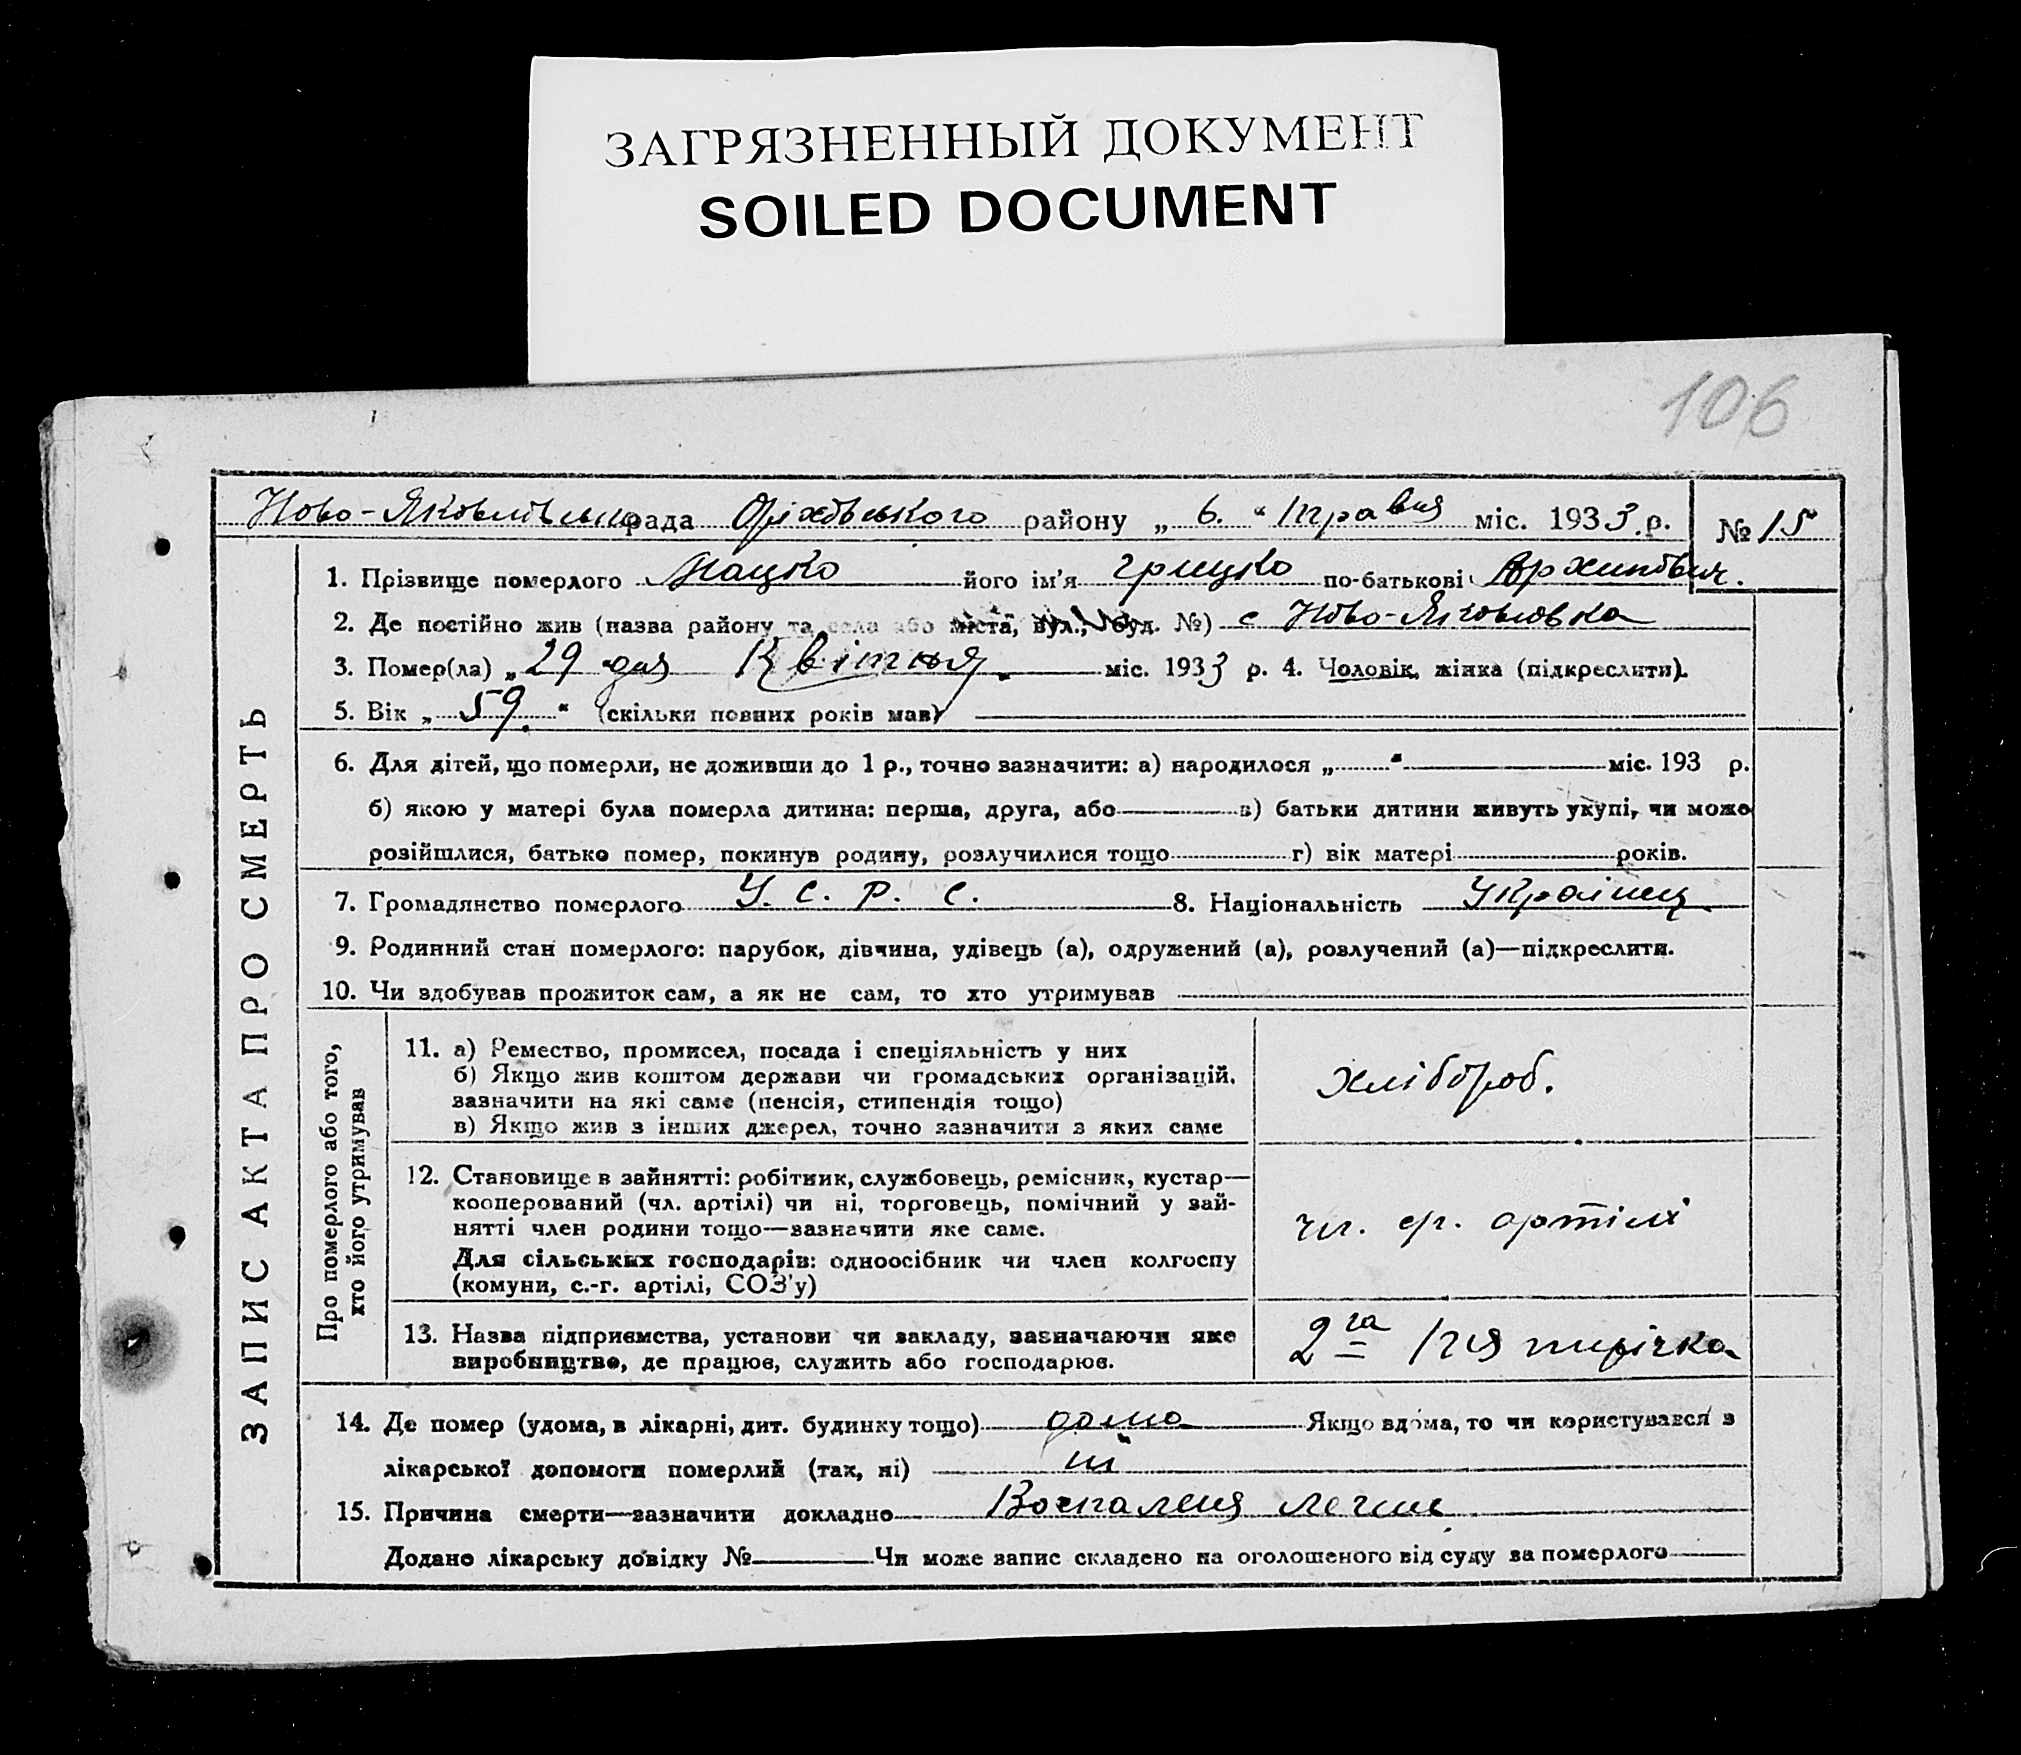 ЗАГРЯЗНЕННЫЙ ДОКУМЕНТ
SOILED DOCUMENT
106
Ново-Яковлівська рада Оріхівського району „ 6. “ травня міс. 1933 р. № 15
ЗАПИС АКТА ПРО СМЕРТЬ
1. Прізвище померлого Мацко його ім'я Грицко по-батькові Архипович.
2. Де постійно жив (назва району та села або міста, вул., буд. №) с Ново-Яковлювка
3. Помер(ла) „ 29 “ дня Квітня міс. 1933 р. 4. Чоловік, жінка (підкреслити).
5. Вік „ 59. “ (скільки повних років мав)
6. Для дітей, що померли, не доживши до 1 р., точно зазначити: а) народилося „ “ міс. 193 р.
б) якою у матері була померла дитина: перша, друга, або в) батьки дитини живуть укупі, чи може
розійшлися, батько помер, покинув родину, розлучилися тощо г) вік матері років.
7. Громадянство померлого У. С. Р. С. 8. Національність Українец
9. Родинний стан померлого: парубок, дівчина, удівець (а), одружений (а), розлучений (а)—підкреслити.
10. Чи здобував прожиток сам, а як не сам, то хто утримував
Про померлого або того,
хто його утримував
11. а) Ремество, промисел, посада і спеціяльність у них
б) Якщо жив коштом держави чи громадських організацій,
зазначити на які саме (пенсія, стипендія тощо)
в) Якщо жив з інших джерел, точно зазначити з яких саме
хлібороб.
12. Становище в зайнятті: робітник, службовець, ремісник, кустар—
кооперований (чл. артілі) чи ні, торговець, помічний у зай-
нятті член родини тощо—зазначити яке саме.
Для сільських господарів: одноосібник чи член колгоспу
(комуни, с.-г. артілі, СОЗ'у)
чл. ср. артілі
13. Назва підприємства, установи чи закладу, зазначаючи яке
виробництво, де працює, служить або господарює.
2га Пятирічка
14. Де помер (удома, в лікарні, дит. будинку тощо) дома Якщо вдома, то чи користувався з
лікарської допомоги померлий (так, ні) ні
15. Причина смерти—зазначити докладно Воспаленя легше
Додано лікарську довідку № Чи може запис складено на оголошеного від суду за померлого